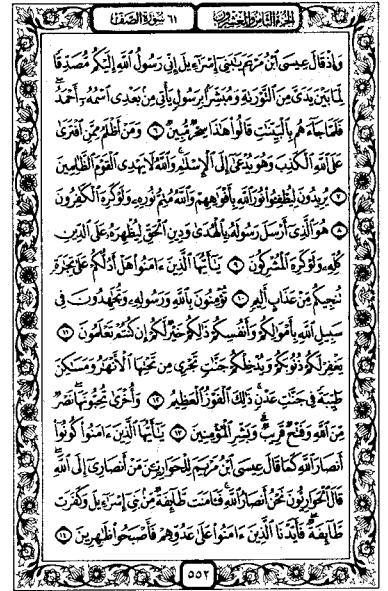 ٦١ سُورَةُ الصَّفِّ الجُزْءُ الثَّامِنُ وَالعِشْرُونَ
وَإِذْ قَالَ عِيسَى ٱبْنُ مَرْيَمَ يَٰبَنِىٓ إِسْرَٰٓءِيلَ إِنِّى رَسُولُ ٱللَّهِ إِلَيْكُم مُّصَدِّقًا
لِّمَا بَيْنَ يَدَىَّ مِنَ ٱلتَّوْرَىٰةِ وَمُبَشِّرًۢا بِرَسُولٍ يَأْتِى مِنۢ بَعْدِى ٱسْمُهُۥٓ أَحْمَدُ ۖ
فَلَمَّا جَآءَهُم بِٱلْبَيِّنَٰتِ قَالُوا۟ هَٰذَا سِحْرٌ مُّبِينٌ ٦ وَمَنْ أَظْلَمُ مِمَّنِ ٱفْتَرَىٰ
عَلَى ٱللَّهِ ٱلْكَذِبَ وَهُوَ يُدْعَىٰٓ إِلَى ٱلْإِسْلَٰمِ ۚ وَٱللَّهُ لَا يَهْدِى ٱلْقَوْمَ ٱلظَّٰلِمِينَ
٧ يُرِيدُونَ لِيُطْفِـُٔوا۟ نُورَ ٱللَّهِ بِأَفْوَٰهِهِمْ وَٱللَّهُ مُتِمُّ نُورِهِۦ وَلَوْ كَرِهَ ٱلْكَٰفِرُونَ
٨ هُوَ ٱلَّذِىٓ أَرْسَلَ رَسُولَهُۥ بِٱلْهُدَىٰ وَدِينِ ٱلْحَقِّ لِيُظْهِرَهُۥ عَلَى ٱلدِّينِ
كُلِّهِۦ وَلَوْ كَرِهَ ٱلْمُشْرِكُونَ ٩ يَٰٓأَيُّهَا ٱلَّذِينَ ءَامَنُوا۟ هَلْ أَدُلُّكُمْ عَلَىٰ تِجَٰرَةٍ
تُنجِيكُم مِّنْ عَذَابٍ أَلِيمٍ ١٠ تُؤْمِنُونَ بِٱللَّهِ وَرَسُولِهِۦ وَتُجَٰهِدُونَ فِى
سَبِيلِ ٱللَّهِ بِأَمْوَٰلِكُمْ وَأَنفُسِكُمْ ۚ ذَٰلِكُمْ خَيْرٌ لَّكُمْ إِن كُنتُمْ تَعْلَمُونَ ١١
يَغْفِرْ لَكُمْ ذُنُوبَكُمْ وَيُدْخِلْكُمْ جَنَّٰتٍ تَجْرِى مِن تَحْتِهَا ٱلْأَنْهَٰرُ وَمَسَٰكِنَ
طَيِّبَةً فِى جَنَّٰتِ عَدْنٍ ۚ ذَٰلِكَ ٱلْفَوْزُ ٱلْعَظِيمُ ١٢ وَأُخْرَىٰ تُحِبُّونَهَا ۖ نَصْرٌ
مِّنَ ٱللَّهِ وَفَتْحٌ قَرِيبٌ ۗ وَبَشِّرِ ٱلْمُؤْمِنِينَ ١٣ يَٰٓأَيُّهَا ٱلَّذِينَ ءَامَنُوا۟ كُونُوٓا۟
أَنصَارَ ٱللَّهِ كَمَا قَالَ عِيسَى ٱبْنُ مَرْيَمَ لِلْحَوَارِيِّـۧنَ مَنْ أَنصَارِىٓ إِلَى ٱللَّهِ ۖ
قَالَ ٱلْحَوَارِيُّونَ نَحْنُ أَنصَارُ ٱللَّهِ ۖ فَـَٔامَنَت طَّآئِفَةٌ مِّنۢ بَنِىٓ إِسْرَٰٓءِيلَ وَكَفَرَت
طَّآئِفَةٌ ۖ فَأَيَّدْنَا ٱلَّذِينَ ءَامَنُوا۟ عَلَىٰ عَدُوِّهِمْ فَأَصْبَحُوا۟ ظَٰهِرِينَ ١٤
٥٥٢